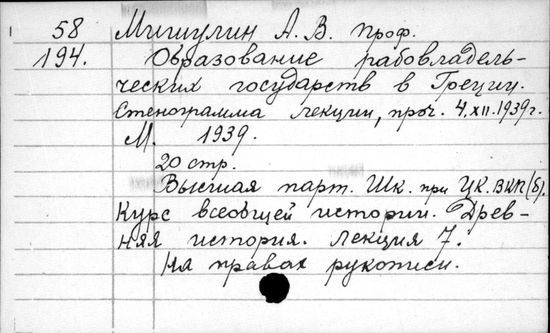 58 Мишулин А. В. проф.
194. Образование рабовладель-
ческих государств в Греции.
Стенограмма лекции, проч. 4.XII.1939г.
М. 1939.
20 стр.
Высшая парт. Шк. при ЦК. ВКП(б).
Курс всеобщей истории. Древ-
няя история. Лекция 7.
На правах рукописи.